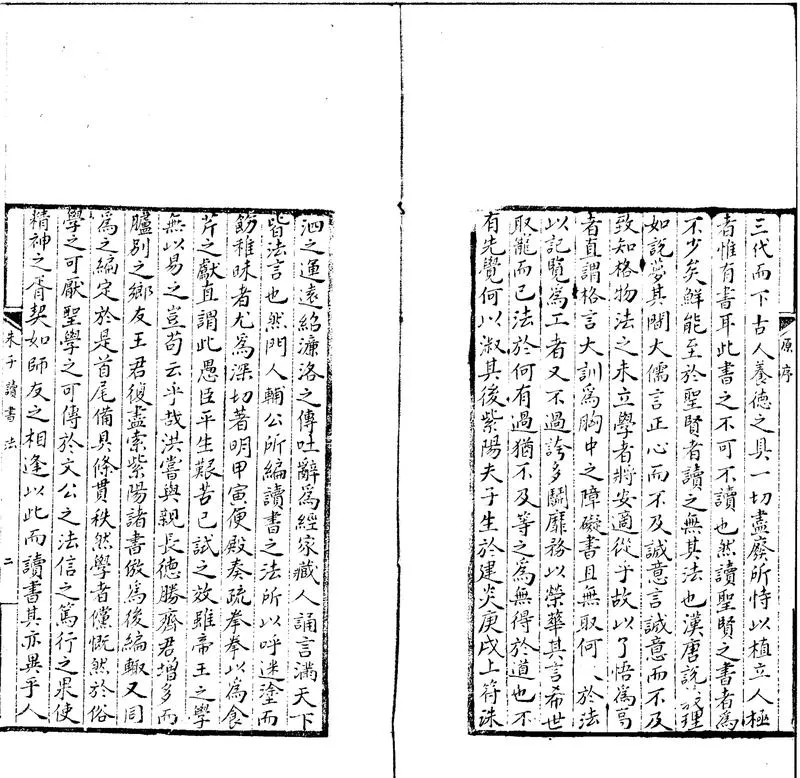 原序
三代而下古人養德之具一切盡廢所恃以植立人極
者惟有書耳此書之不可不讀也然讀聖賢之書者為
不少矣鮮能至於聖賢者讀之無其法也漢唐說理
如說夢其間大儒言正心而不及誠意言誠意而不及
致知格物法之未立學者將安適從乎故以了悟爲高
者直謂格言大訓爲胸中之障礙書且無取何於法
以記覽爲工者又不過誇多鬬靡務以榮華其言希世
取寵而已法於何有過猶不及等之爲無得於道也不
有先覺何以淑其後紫陽夫子生於建炎庚戌上符洙
泗之運遠紹濂洛之傳吐辭爲經家藏人誦言滿天下
皆法言也然門人輔公所編讀書之法所以呼迷塗而
飭稚昧者尤爲深切著明甲寅便殿奏疏拳拳以為食
芹之獻直謂此愚臣平生艱苦已試之效雖帝王之學
無以易之豈苟云乎哉洪嘗與親長德勝齊君增多而
臚別之鄉友王君復盡索紫陽諸書倣爲後編輙又同
爲之編定於是首尾備具條貫秩然學者儻慨然於俗
學之可厭聖學之可傳於文公之法信之篤行之果使
精神之胥契如師友之相逢以此而讀書其亦異乎人
朱子讀書法
二